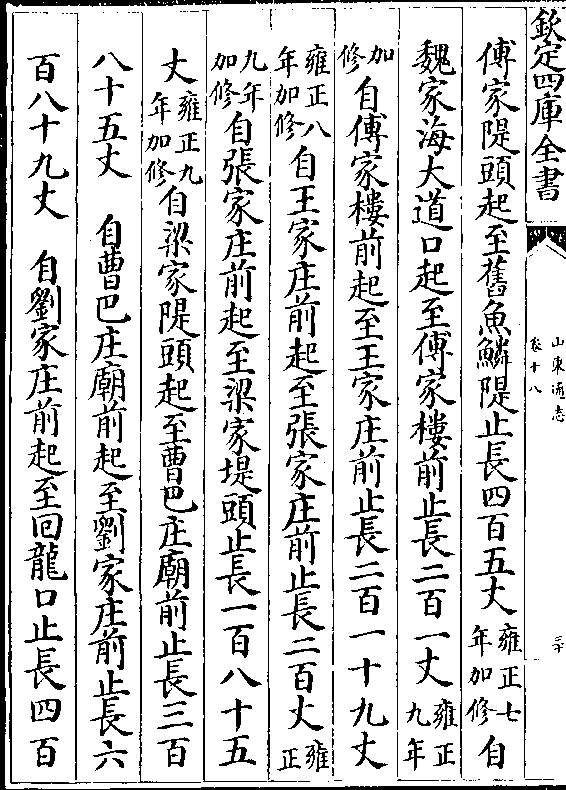 欽定四庫全書
山東通志
卷十八
三十
傅家隄頭起至舊魚鱗隄止長四百五丈雍正七年加修自
魏家海大道口起至傅家樓前止長二百一丈雍正九年
加修自傅家樓前起至王家庄前止長二百一十九丈
雍正八年加修自王家庄前起至張家庄前止長二百丈雍正
九年加修自張家庄前起至梁家堤頭止長一百八十五
丈雍正九年加修自梁家隄頭起至曹巴庄廟前止長三百
八十五丈 自曹巴庄廟前起至劉家庄前止長六
百八十九丈 自劉家庄前起至回龍口止長四百